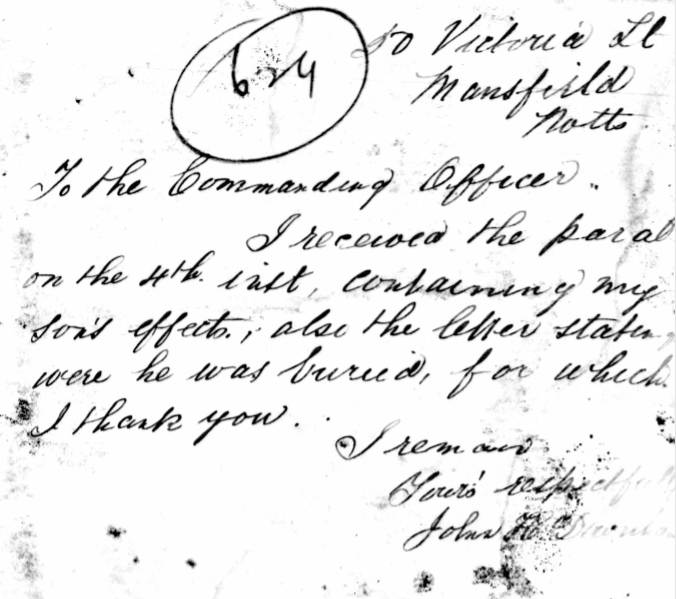 Victoria St
Mansfield
Notts
To the Commanding Officer.
I received the parcel
on the 4th. inst, containing my
son's effects., also the letter stating
were he was buried, for which
I thank you.
I remain
Your's respectfully
John